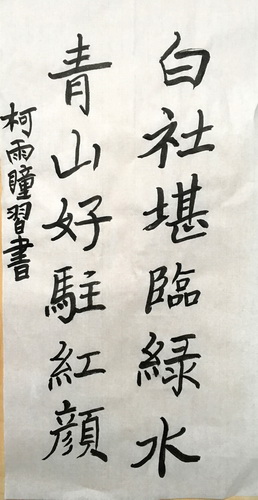 白社堪臨綠水
青山好駐紅顏
柯雨瞳習書